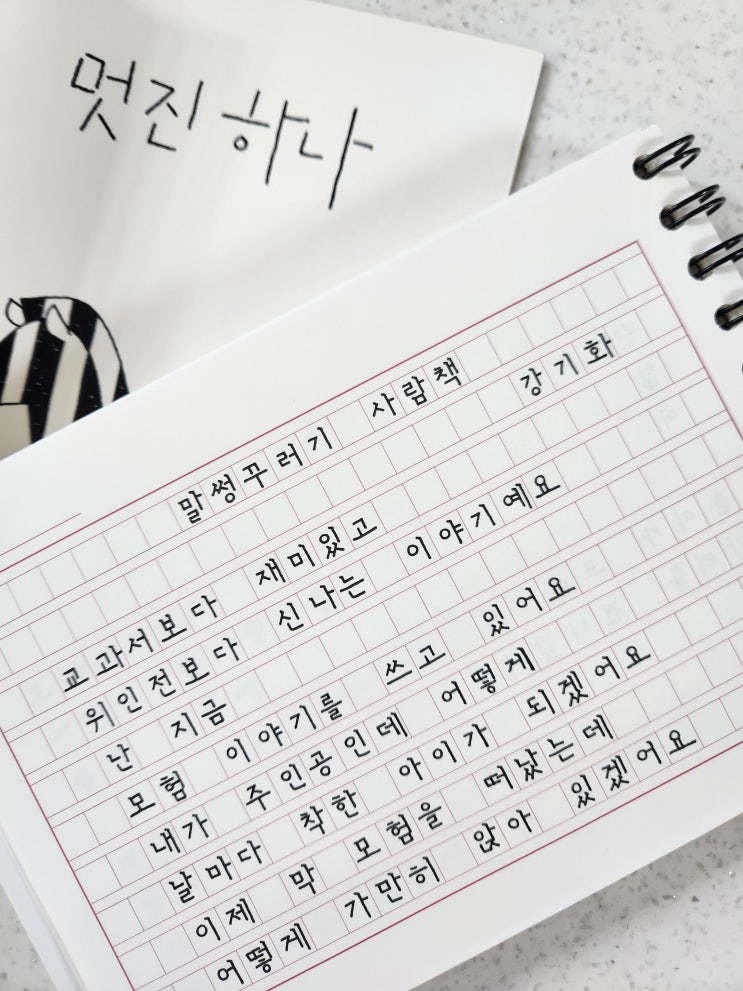 멋진 하나
말썽꾸러기 사람책
강기화
교과서보다 재미있고
위인전보다 신나는 이야기예요
난 지금
모험 이야기를 쓰고 있어요
내가 주인공인데 어떻게
날마다 착한 아이가 되겠어요
이제 막 모험을 떠났는데
어떻게 가만히 앉아 있겠어요